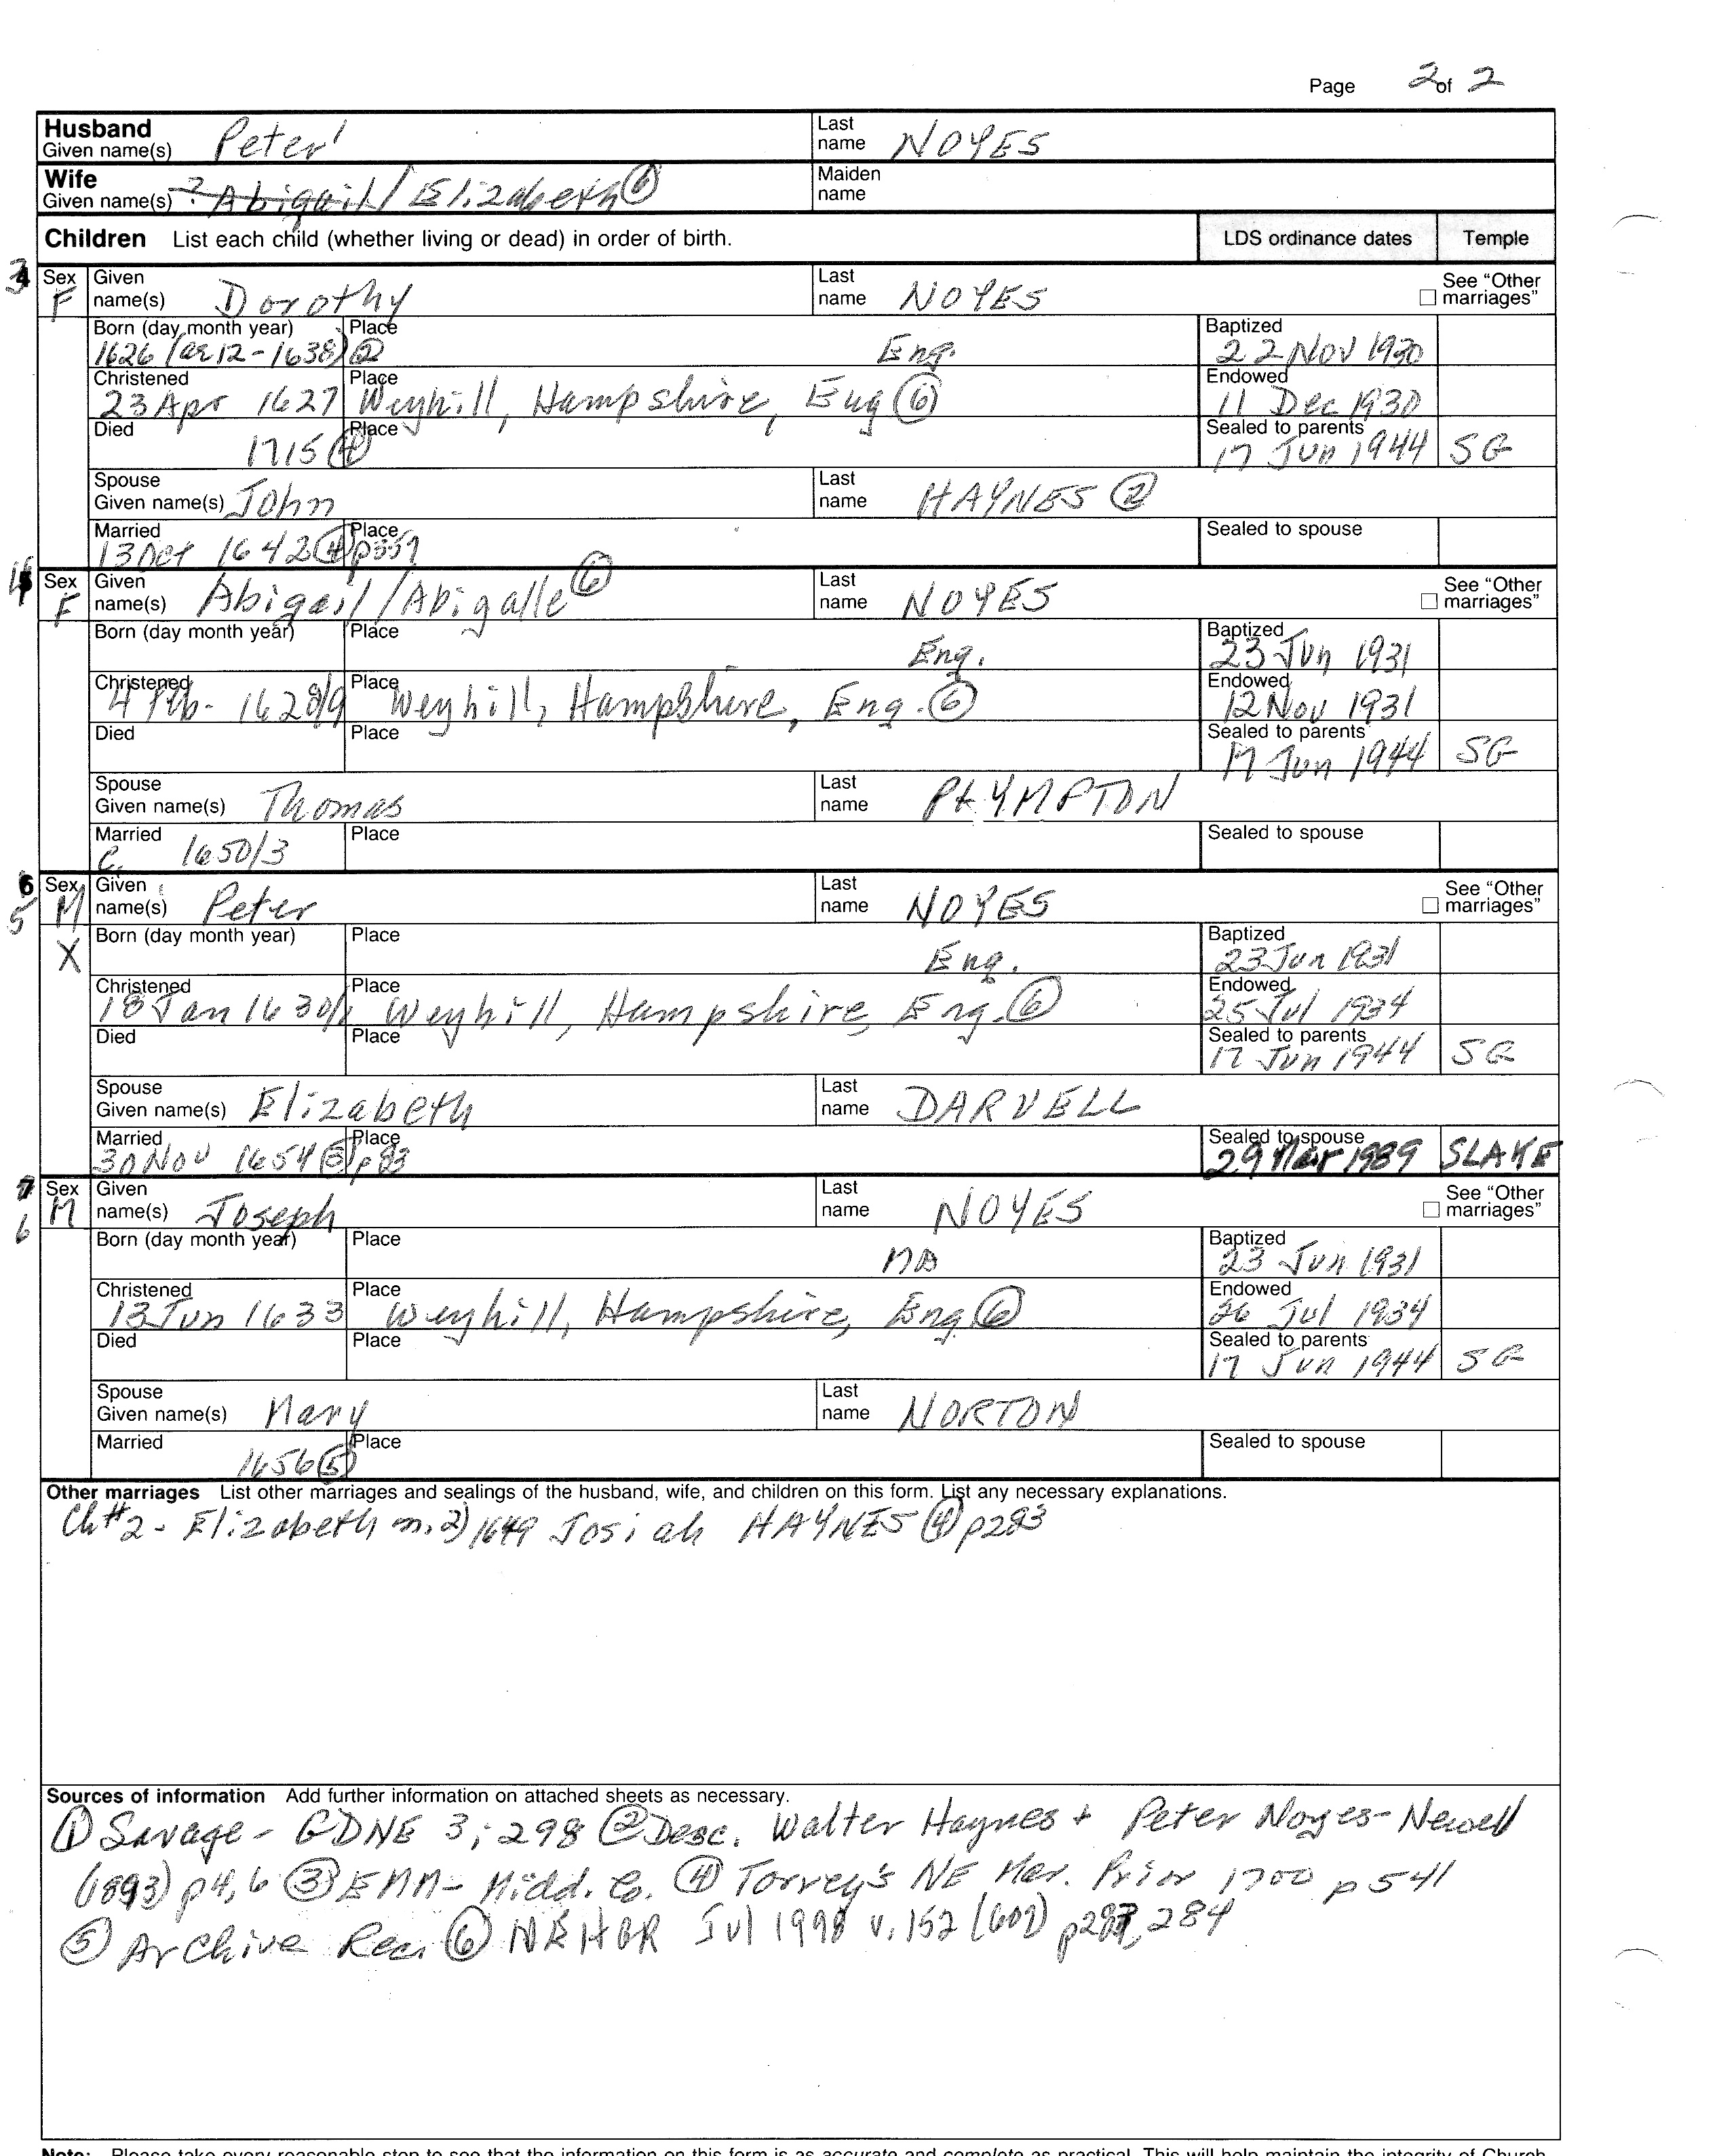 Page 2 of 2
Husband
Given name(s) Peter¹ Last name NOYES
Wife
Given name(s) ? Abigail / Elizabeth ⑥ Maiden name
Children List each child (whether living or dead) in order of birth. LDS ordinance dates Temple
3 Sex F Given name(s) Dorothy Last name NOYES See “Other marriages”
Born (day month year) 1626 (ae 12-1638) ② Place Eng. Baptized 22 Nov 1930
Christened 23 Apr 1627 Place Weyhill, Hampshire, Eng ⑥ Endowed 11 Dec 1930
Died 1715 ④ Place Sealed to parents 17 Jun 1944 SG
Spouse
Given name(s) John Last name HAYNES ②
Married 13 Oct 1642 ④ Place Sealed to spouse
4 Sex F Given name(s) Abigail/Abigalle ⑥ Last name NOYES See “Other marriages”
Born (day month year) Place Eng. Baptized 23 Jun 1931
Christened 4 Feb. 1628/9 Place Weyhill, Hampshire, Eng. ⑥ Endowed 12 Nov 1931
Died Place Sealed to parents 17 Jun 1944 SG
Spouse
Given name(s) Thomas Last name PLYMPTON
Married C. 1650/3 Place Sealed to spouse
6 5 Sex M Given name(s) Peter Last name NOYES See “Other marriages”
X Born (day month year) Place Eng. Baptized 23 Jun 1931
Christened 18 Jan 1630/1 Place Weyhill, Hampshire, Eng. ⑥ Endowed 25 Jul 1934
Died Place Sealed to parents 17 Jun 1944 SG
Spouse
Given name(s) Elizabeth Last name DARVELL
Married 30 Nov 1654 ⑤ p83 Place Sealed to spouse 29 Mar 1989 SLAKE
7 6 Sex M Given name(s) Joseph Last name NOYES See “Other marriages”
Born (day month year) Place MA Baptized 23 Jun 1931
Christened 13 Jun 1633 Place Weyhill, Hampshire, Eng ⑥ Endowed 26 Jul 1934
Died Place Sealed to parents 17 Jun 1944 SG
Spouse
Given name(s) Mary Last name NORTON
Married 1656 ⑤ Place Sealed to spouse
Other marriages List other marriages and sealings of the husband, wife, and children on this form. List any necessary explanations.
Ch #2 - Elizabeth m. 2) 1649 Josiah HAYNES ④ p283
Sources of information Add further information on attached sheets as necessary.
① Savage - GDNE 3; 298 ② Desc. Walter Haynes + Peter Noyes - Newell
(1893) p4, 6 ③ EMM - Midd. Co. ④ Torrey's NE Mar. Prior 1700 p 541
⑤ Archive Rec. ⑥ NEHGR Jul 1998 v. 152 (607) 284
Note: Please take every reasonable step to see that the information on this form is as accurate and complete as practical. This will help maintain the integrity of Church